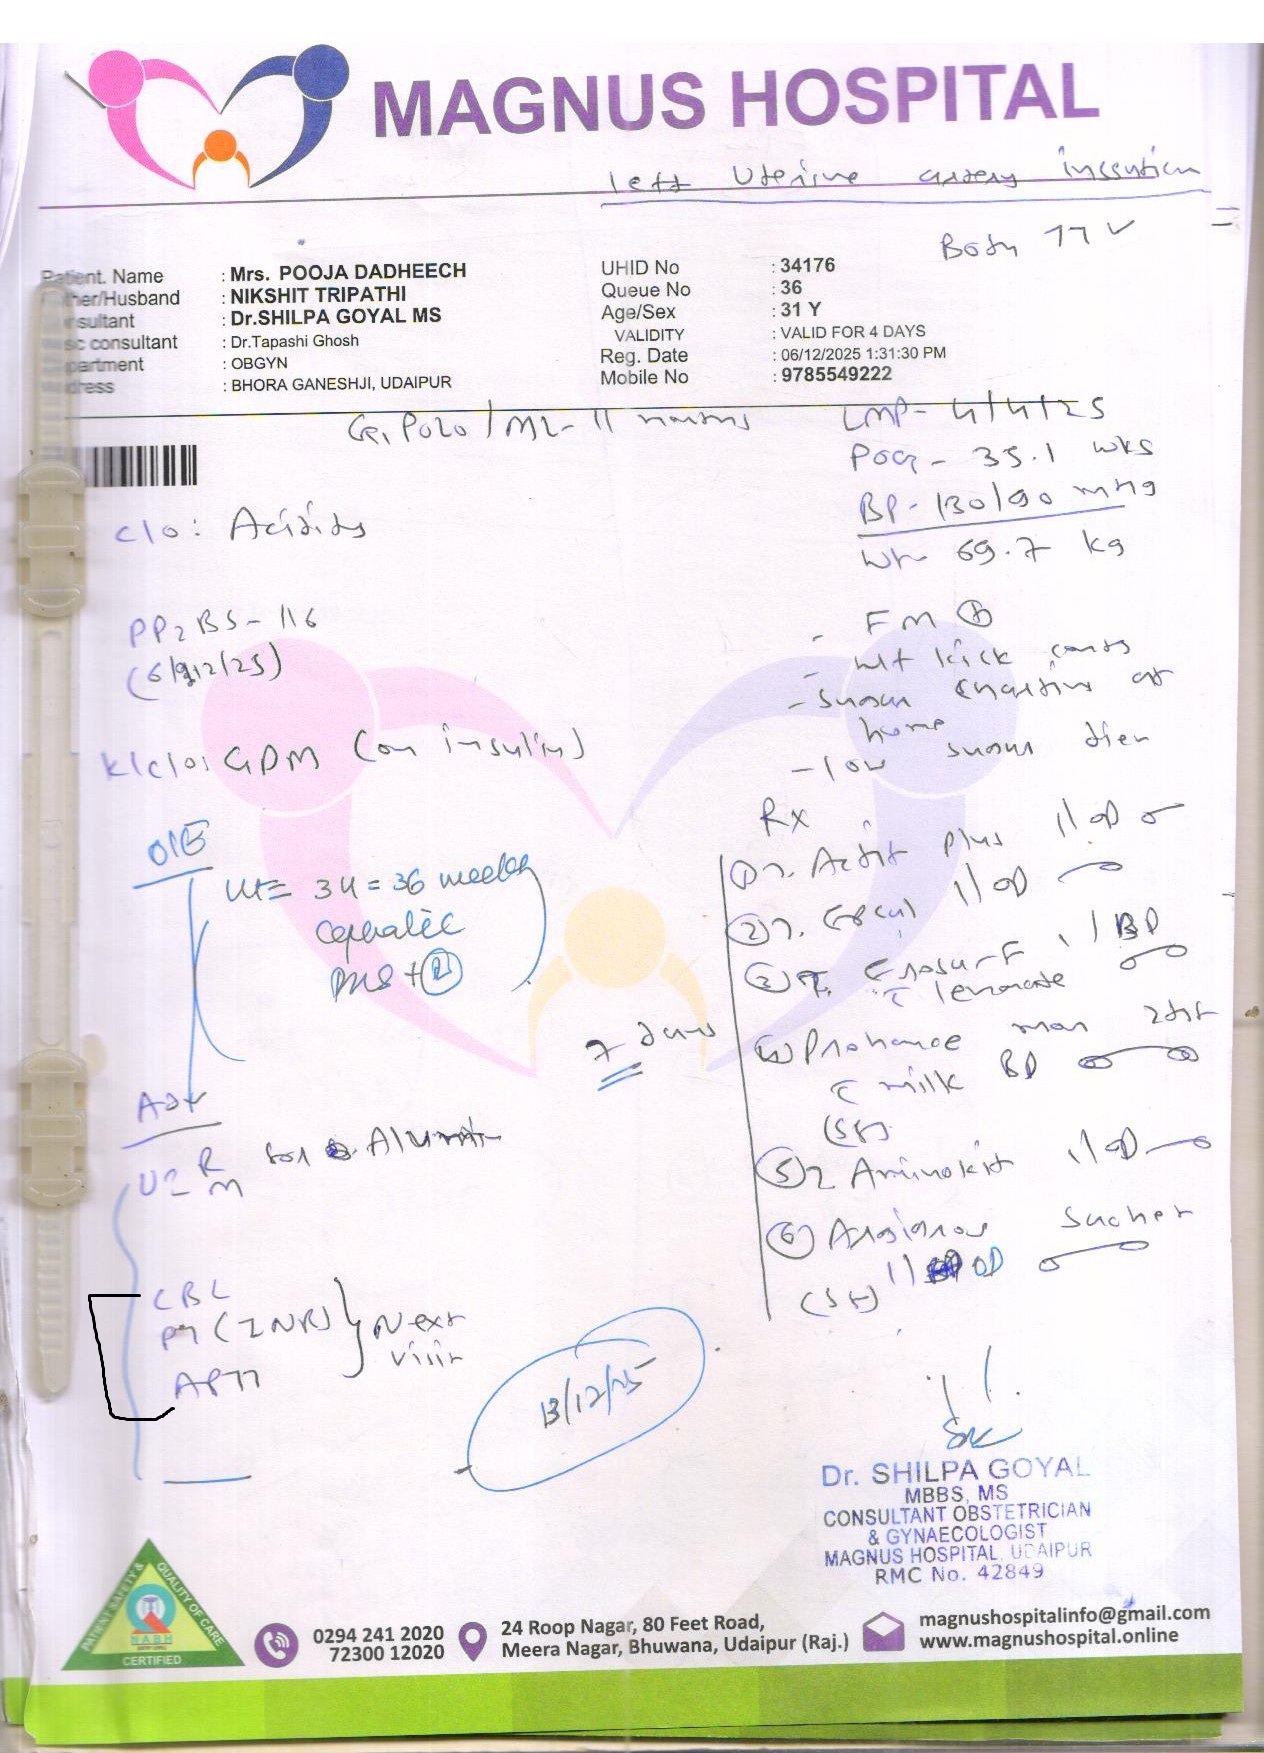 MAGNUS HOSPITAL
left Uterine artery
Both TT ✓
Patient. Name : Mrs. POOJA DADHEECH
her/Husband : NIKSHIT TRIPATHI
sultant : Dr.SHILPA GOYAL MS
consultant : Dr.Tapashi Ghosh
partment : OBGYN
dress : BHORA GANESHJI, UDAIPUR
UHID No : 34176
Queue No : 36
Age/Sex : 31 Y
VALIDITY : VALID FOR 4 DAYS
Reg. Date : 06/12/2025 1:31:30 PM
Mobile No : 9785549222
G1P0L0 / ML- 11 months
LMP- 4/4/25
POG - 35.1 wks
BP- 130/90 mmHg
Wt- 69.7 kg
c/o: Acidity
PP2BS - 116
(6/12/25)
k/c/o: GDM (on insulin)
- FM ⊕
- kick counts
- sugar charting at home
- low sugar diet
O/E
34 = 36 weeks
Cephalic
Adv
R/M
CBC
PT (INR)
APTT
} Next visit
13/12/25
7 days
Rx
① Plus 1/OD
② 1/OD
③ BD
④ Prohance mom
c milk BD
⑤ Aminokit 1/OD
⑥ Sachet
1/ OD
Dr. SHILPA GOYAL
MBBS, MS
CONSULTANT OBSTETRICIAN
& GYNAECOLOGIST
MAGNUS HOSPITAL, UDAIPUR
RMC No. 42849
PATIENT SAFETY & QUALITY OF CARE
NABH
CERTIFIED
0294 241 2020
72300 12020
24 Roop Nagar, 80 Feet Road,
Meera Nagar, Bhuwana, Udaipur (Raj.)
magnushospitalinfo@gmail.com
www.magnushospital.online